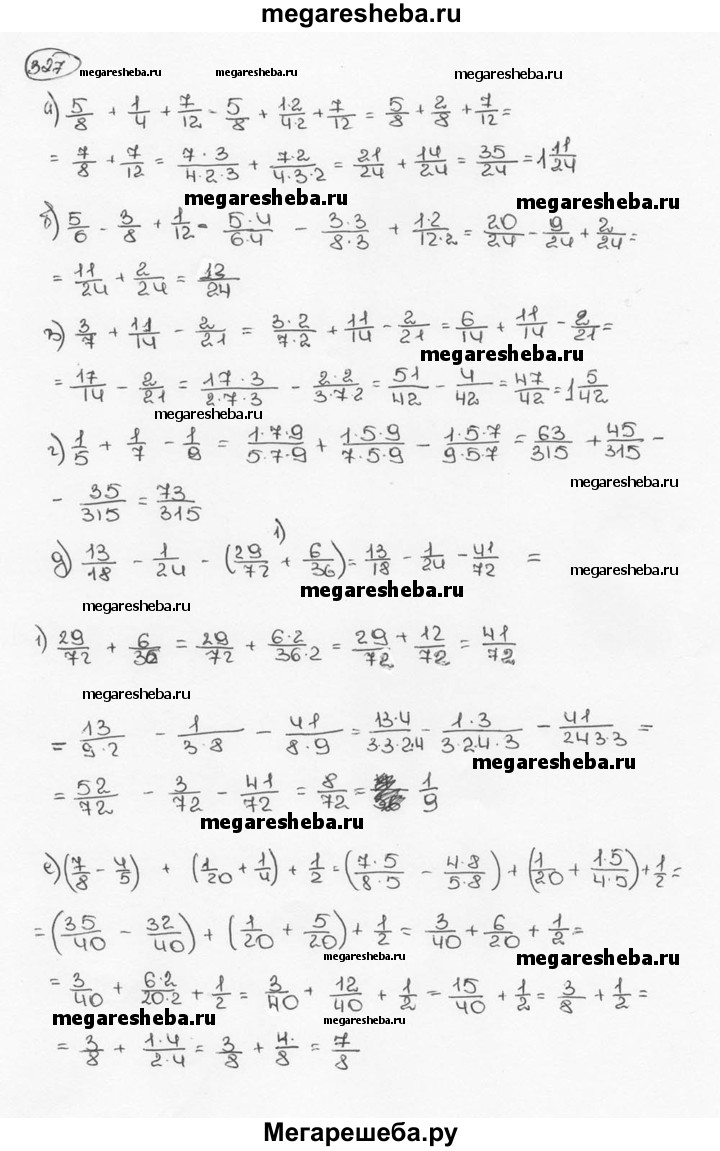 megaresheba.ru
327
megaresheba.ru megaresheba.ru megaresheba.ru
а) 5/8 + 1/4 + 7/12 - 5/8 + 1·2/4·2 + 7/12 = 5/8 + 2/8 + 7/12 =
= 7/8 + 7/12 = 7·3/4·2·3 + 7·2/4·3·2 = 21/24 + 14/24 = 35/24 = 1 11/24
megaresheba.ru megaresheba.ru
б) 5/6 - 3/8 + 1/12 = 5·4/6·4 - 3·3/8·3 + 1·2/12·2 = 20/24 - 9/24 + 2/24 =
= 11/24 + 2/24 = 13/24
в) 3/7 + 11/14 - 2/21 = 3·2/7·2 + 11/14 - 2/21 = 6/14 + 11/14 - 2/21 =
megaresheba.ru
= 17/14 - 2/21 = 17·3/2·7·3 - 2·2/3·7·2 = 51/42 - 4/42 = 47/42 = 1 5/42
megaresheba.ru
г) 1/5 + 1/7 - 1/9 = 1·7·9/5·7·9 + 1·5·9/7·5·9 - 1·5·7/9·5·7 = 63/315 + 45/315 -
megaresheba.ru
- 35/315 = 73/315
1)
д) 13/18 - 1/24 - (29/72 + 6/36) = 13/18 - 1/24 - 41/72 =
megaresheba.ru
megaresheba.ru
megaresheba.ru
1) 29/72 + 6/36 = 29/72 + 6·2/36·2 = 29/72 + 12/72 = 41/72
megaresheba.ru
= 13/9·2 - 1/3·8 - 41/8·9 = 13·4/3·3·2·4 - 1·3/3·2·4·3 - 41/2·4·3·3 =
megaresheba.ru
= 52/72 - 3/72 - 41/72 = 8/72 = 1/9
megaresheba.ru
е) (7/8 - 4/5) + (1/20 + 1/4) + 1/2 = (7·5/8·5 - 4·8/5·8) + (1/20 + 1·5/4·5) + 1/2 =
= (35/40 - 32/40) + (1/20 + 5/20) + 1/2 = 3/40 + 6/20 + 1/2 =
megaresheba.ru
= 3/40 + 6·2/20·2 + 1/2 = 3/40 + 12/40 + 1/2 = 15/40 + 1/2 = 3/8 + 1/2 =
megaresheba.ru megaresheba.ru megaresheba.ru
= 3/8 + 1·4/2·4 = 3/8 + 4/8 = 7/8
Мегарешеба.ру